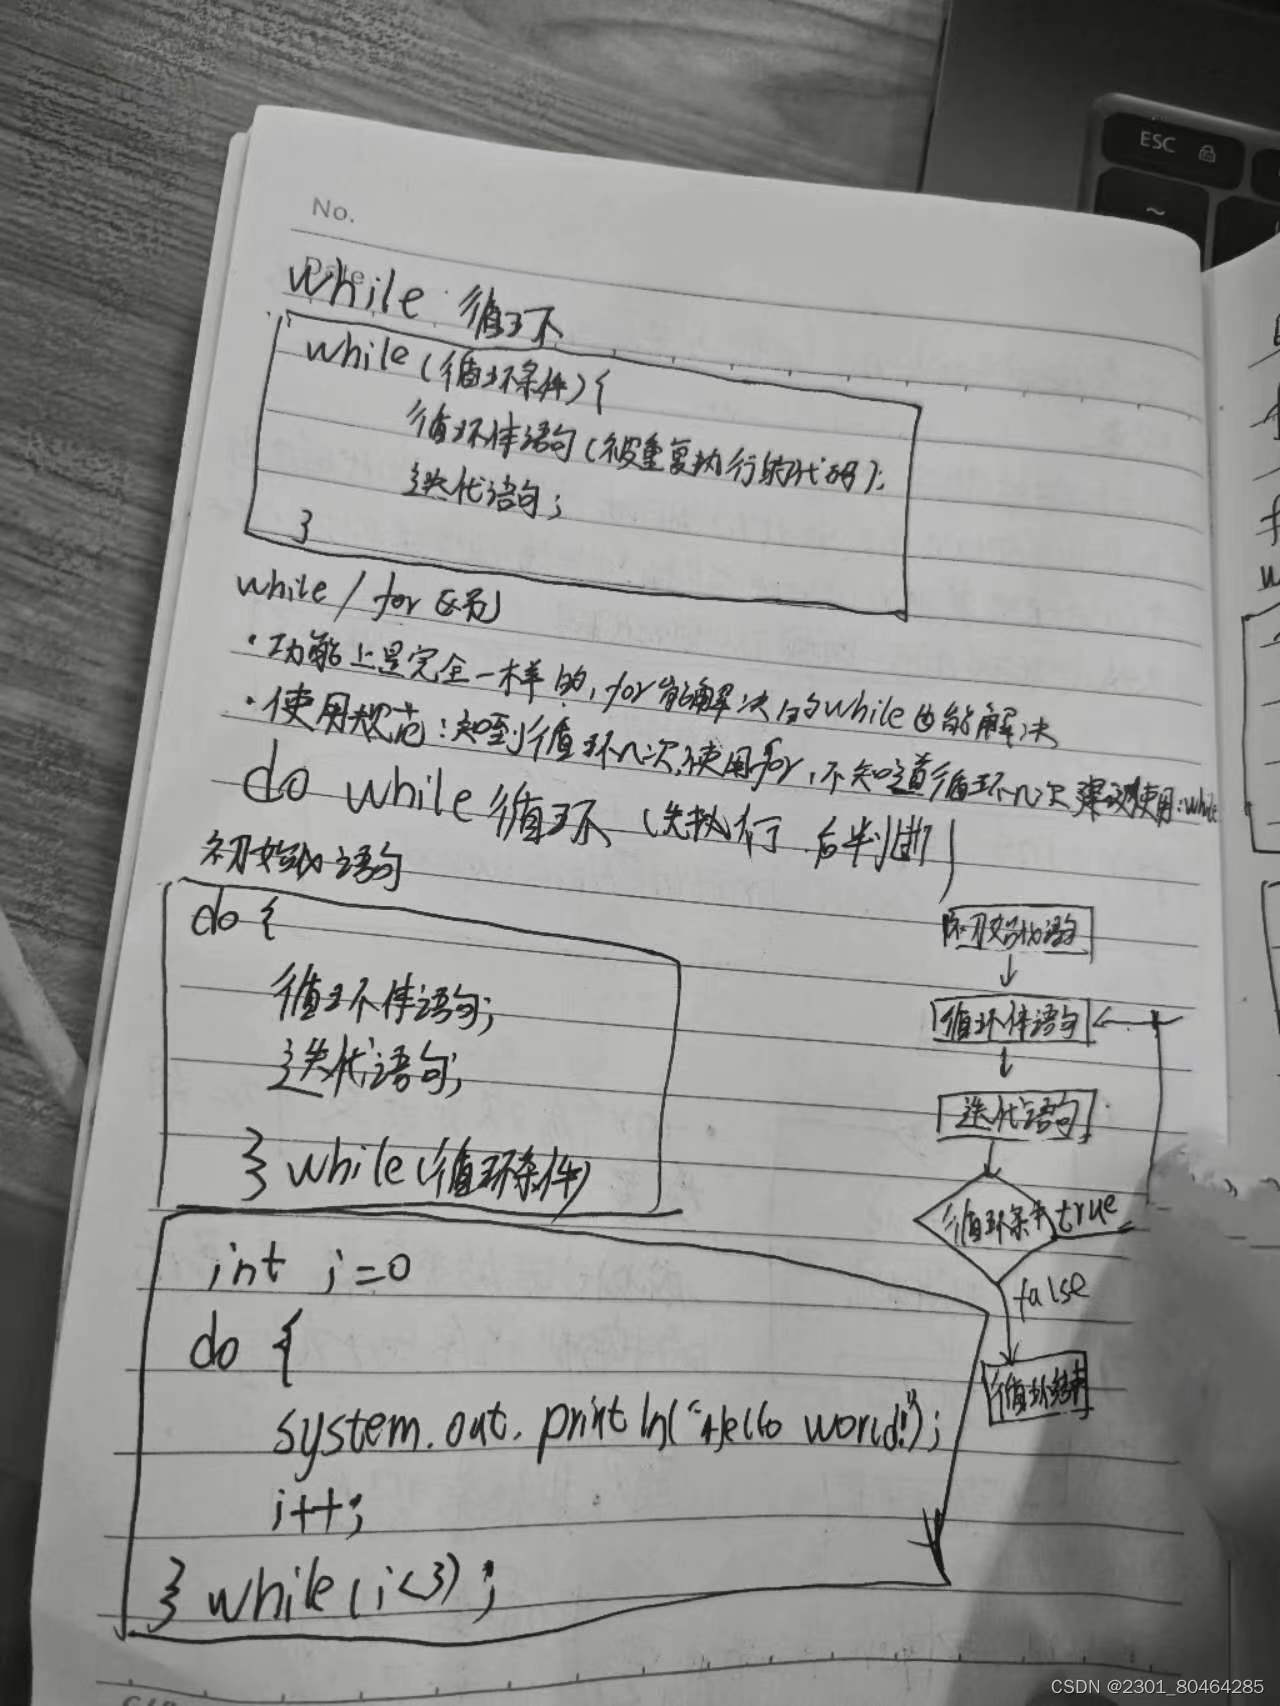 ESC
~
No.
Date
while 循环
while (循环条件) {
循环体语句 (被重复执行的代码);
迭代语句;
}
while / for 区别
·功能上是完全一样的, for能解决的while也能解决
·使用规范:知到循环几次,使用for, 不知道循环几次 建议使用:while
do while 循环 (先执行 后判断)
初始化语句
do {
循环体语句;
迭代语句;
} while (循环条件)
初始化语句
循环体语句
迭代语句
循环条件 true
false
循环结束
int i=0
do {
system.out.println("Hello world!");
i++;
} while (i<3);
CSDN @2301_80464285